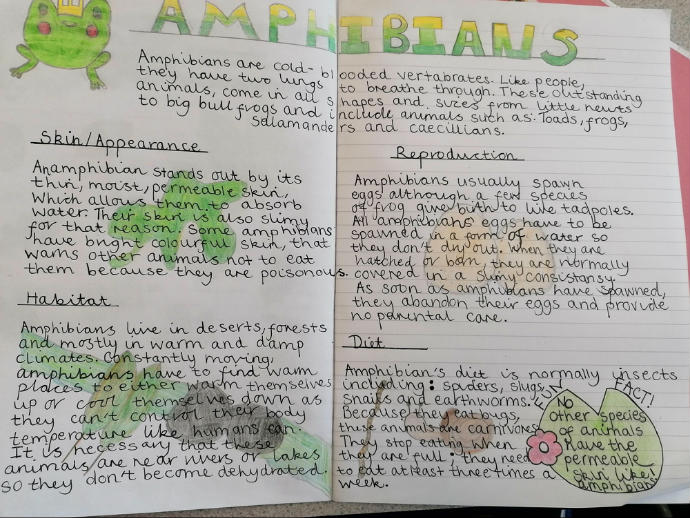 AMPHIBIANS
Amphibians are cold-blooded vertabrates. Like people,
they have two lungs to breathe through. These outstanding
animals, come in all shapes and sizes from little newts
to big bull frogs and include animals such as: Toads, frogs,
Salamanders and caecillians.
Skin/Appearance
An amphibian stands out by its
thin, moist, permeable skin,
which allows them to absorb
water. Their skin is also slimy
for that reason. Some amphibians
have bright colourful skin, that
warns other animals not to eat
them because they are poisonous.
Habitat
Amphibians live in deserts, forests
and mostly in warm and damp
climates. Constantly moving,
amphibians have to find warm
places to either warm themselves
up or cool themselves down as
they can't control their body
temperature like humans can.
It is necessary that these
animals are near rivers or lakes
so they don't become dehydrated.
Reproduction
Amphibians usually spawn
eggs although a few species
of frog give birth to live tadpoles.
All amphibians eggs have to be
spawned in a form of water so
they don't dry out. When they are
hatched or born, they are normally
covered in a slimy consistansy.
As soon as amphibians have spawned,
they abandon their eggs and provide
no parental care.
Diet
Amphibian's diet is normally insects
including: spiders, slugs,
snails and earthworms.
Because they eat bugs,
these animals are carnivores.
They stop eating when
they are full; they need
to eat at least three times a
week.
FUN FACT!
No
other species
of animals
have the
permeable
skin like
amphibians